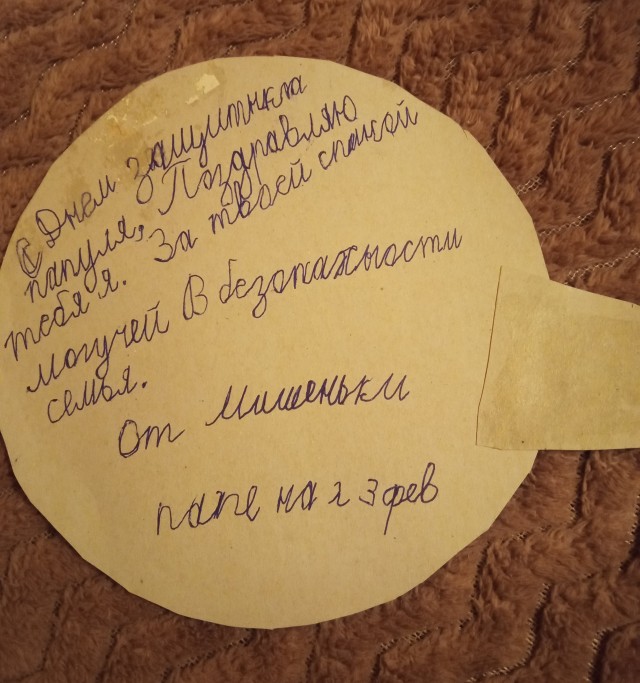 С Днем защитнкла
папуля, Поздравляю
тебя я. За твоей спиной
могучей В безопажности
семья.
От Мишеньки
папе на 23 фев